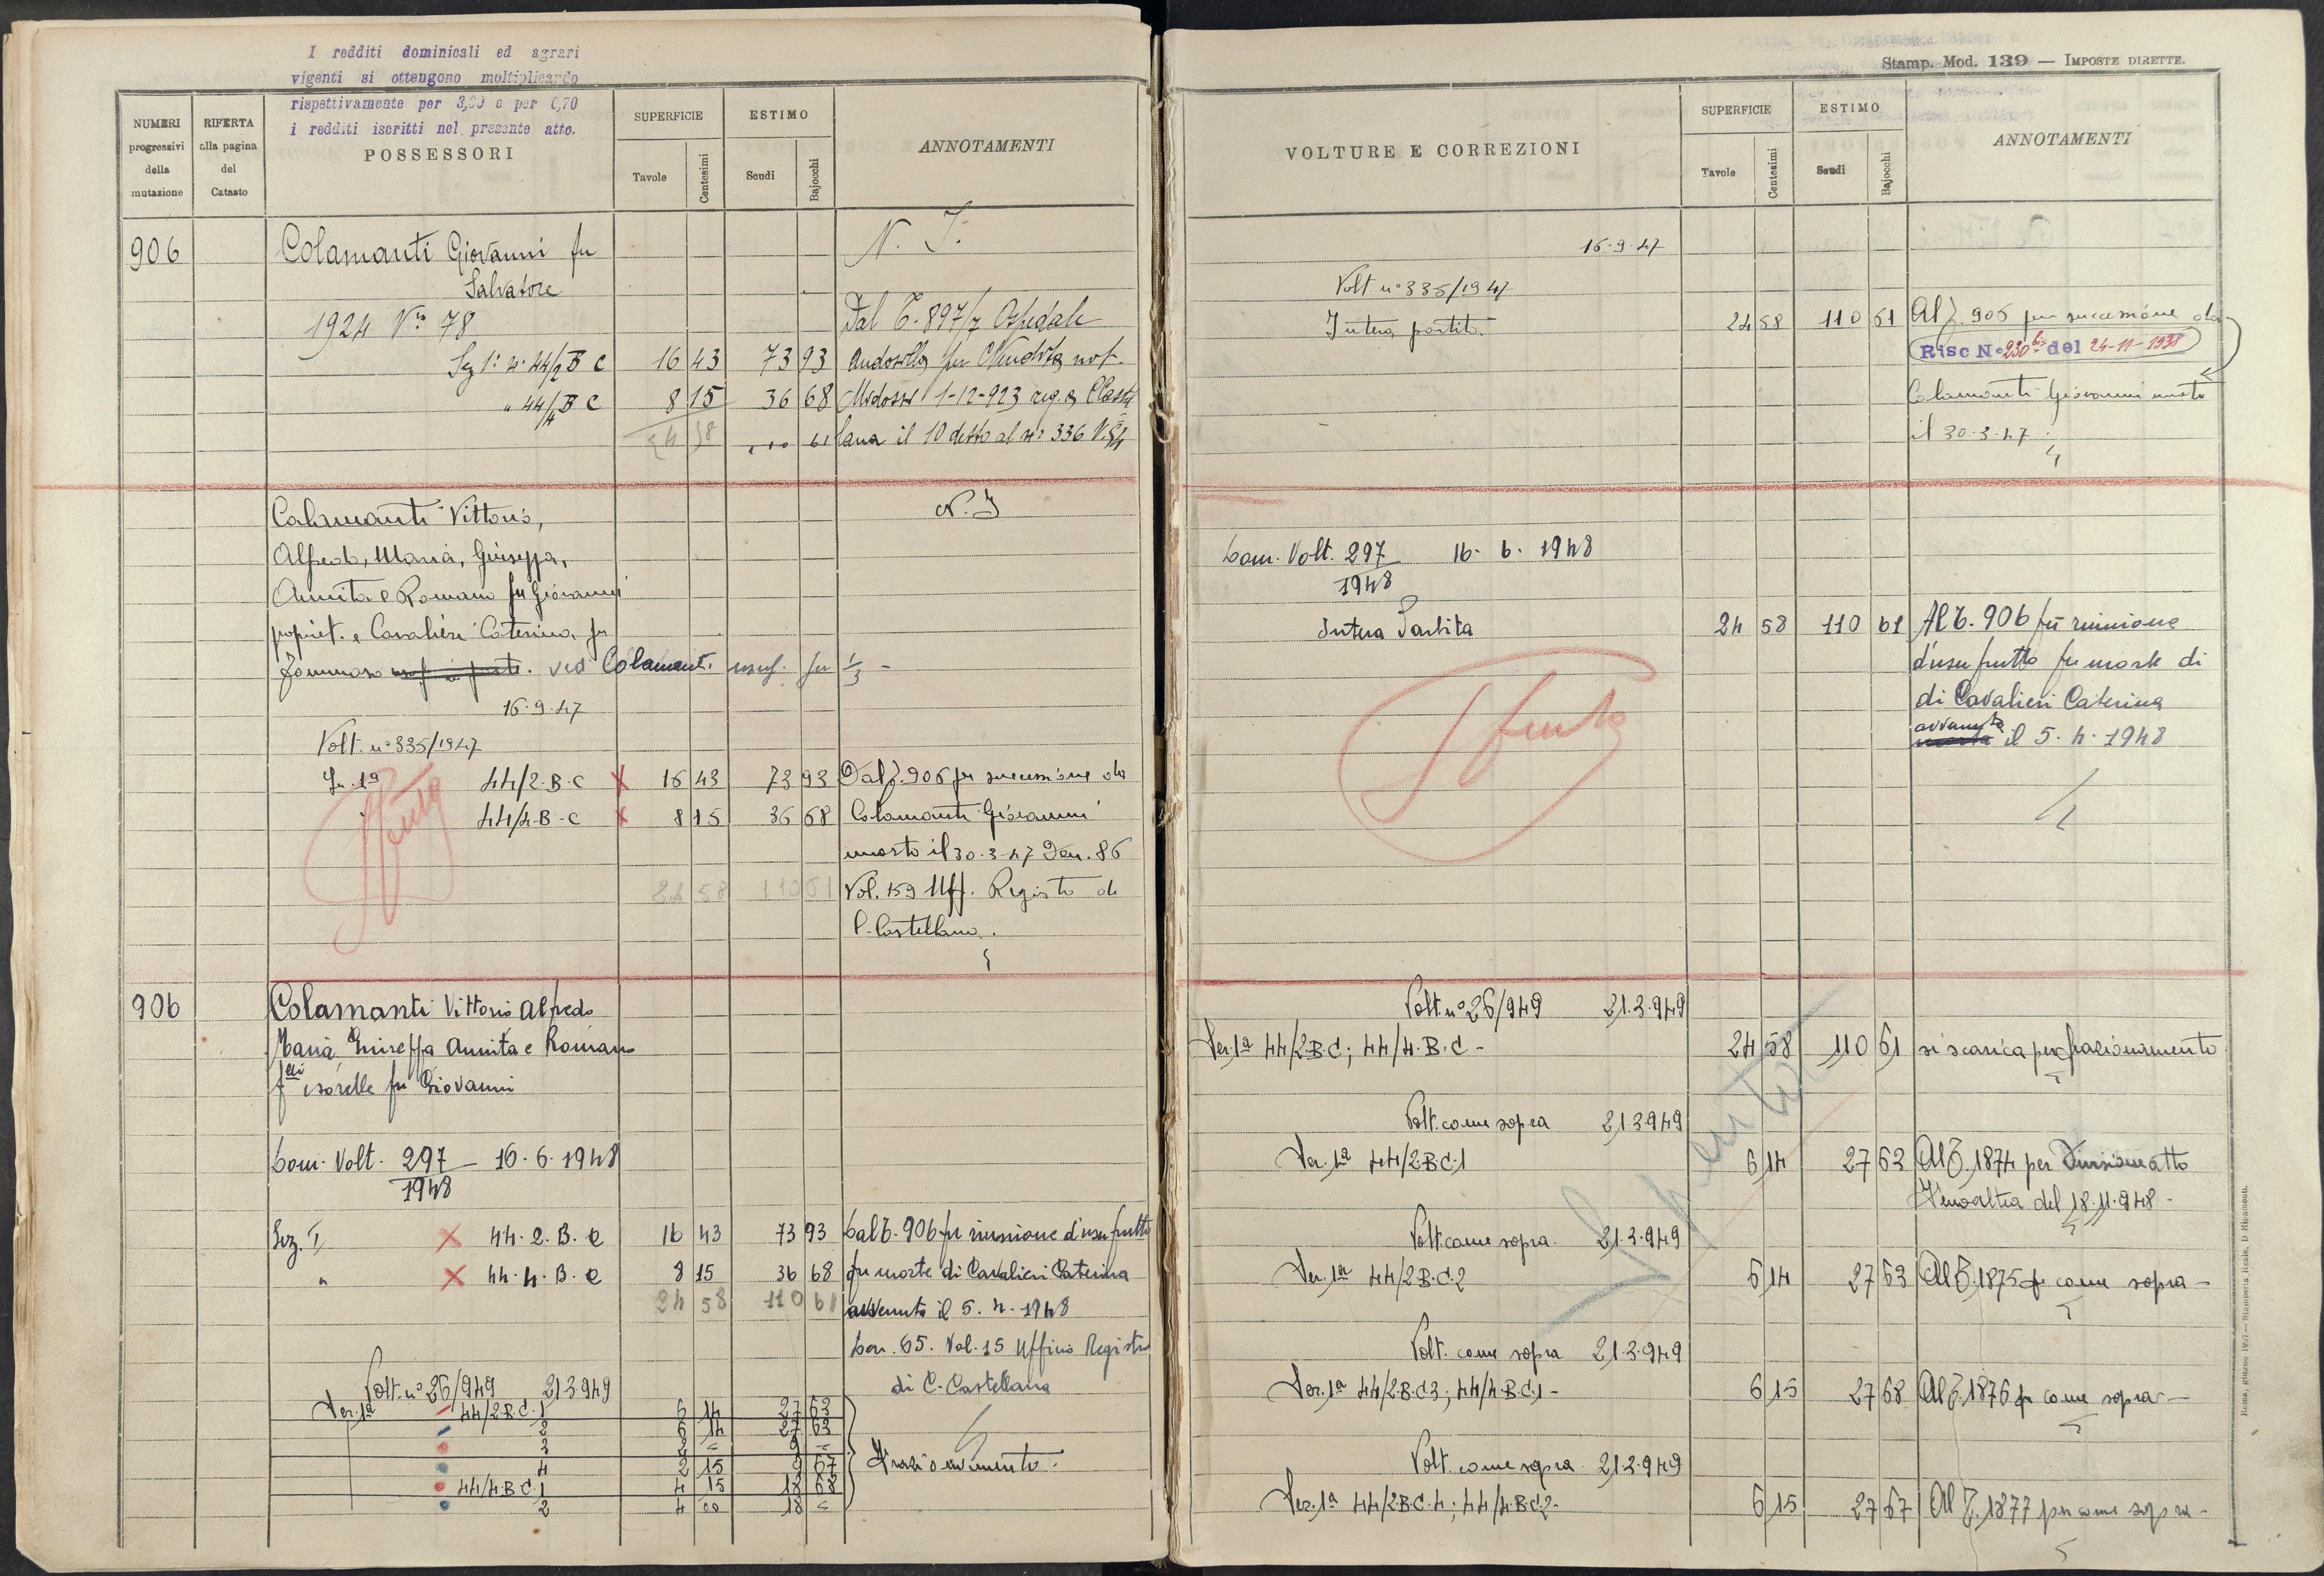 I redditi dominicali ed agrari
vigenti si ottengono moltiplicando
rispettivamente per 3,00 e per 0,70
i redditi iscritti nel presente atto.
NUMERI progressivi della mutazione
RIFERTA alla pagina del Catasto
POSSESSORI
SUPERFICIE
Tavole
Centesimi
ESTIMO
Scudi
Bajocchi
ANNOTAMENTI
906
Colamanti Giovanni fu
Salvatore
1924 Vra 78
N. I.
Dal T. 897/7 Ospedale
Sez 1a n. 44/2 B C 16 43 73 93
" 44/4 B C 8 15 36 68
1-12-923 reg. a C. Castel
24 58 110 61 lana il 10 detto al n: 336 V. 54
Colamanti Vittorio, N. I
Alfredo, Maria, Giuseppa,
Annita e Romano fu Giovanni
propriet. e Cavalieri Caterina fu
Tommaso ved Colamanti usuf. per 1/3 -
16.9.47
Volt. n° 335/1947
44/2.B.C X 16 43 73 93 Dal T. 906 per successione da
44/4.B.C X 8 15 36 68 Colamanti Giovanni
Spento
morto il 30.3.47 Den. 86
24 58 110 61 Vol. 159 Uff. Registro di
C. Castellana.
906
Colamanti Vittorio Alfredo
Maria Giuseppa Annita e Romano
f.lli e sorelle fu Giovanni
Dom. Volt. 297/1948 16.6.1948
Sez. I X 44.2.B.C 16 43 73 93 Dal T. 906 per riunione d'usufrutto
" X 44.4.B.C 8 15 36 68 per morte di Cavalieri Caterina
24 58 110 61 avvenuta il 5.4.1948
Den. 65. Vol. 15 Ufficio Registro
di C. Castellana
Volt. n° 26/949 21.3.949
Sez. 1a 44/2.B.C.1 6 14 27 63
2 6 14 27 63
3 2 = 9 =
4 2 15 9 67 Frazionamento.
44/4.B.C.1 4 15 18 68
2 4 00 18 =
Stamp. Mod. 139 — IMPOSTE DIRETTE.
VOLTURE E CORREZIONI
SUPERFICIE
Tavole
Centesimi
ESTIMO
Scudi
Bajocchi
ANNOTAMENTI
16.9.47
Volt n° 335/1947
Intera partita 24 58 110 61 Al T. 906 per successione da
Risc N° 230 bis del 24-11-1938
Colamanti Giovanni morto
il 30.3.47.
Dom. Volt. 297/1948 16.6.1948
Intera Partita 24 58 110 61 Al T. 906 per riunione
d'usufrutto per morte di
di Cavalieri Caterina
avvenuta il 5.4.1948
Spento
Volt. n° 26/949 21.3.949
Sez. 1a 44/2.B.C; 44/4.B.C - 24 58 110 61 si scarica per frazionamento
Spento
Volt. come sopra 21.3.949
Sez. 1a 44/2.B.C.1 6 14 27 63 Al T. 1874 per Divisione atto
del 18.11.948 -
Volt. come sopra. 21.3.949
Sez. 1a 44/2.B.C.2 6 14 27 63 Al T. 1875 per come sopra -
Volt. come sopra 21.3.949
Sez. 1a 44/2.B.C.3; 44/4.B.C.1 - 6 15 27 68 Al T. 1876 per come sopra -
Volt. come sopra. 21.3.949
Sez. 1a 44/2.B.C.4; 44/4.B.C.2 - 6 15 27 67 Al T. 1877 per come sopra -